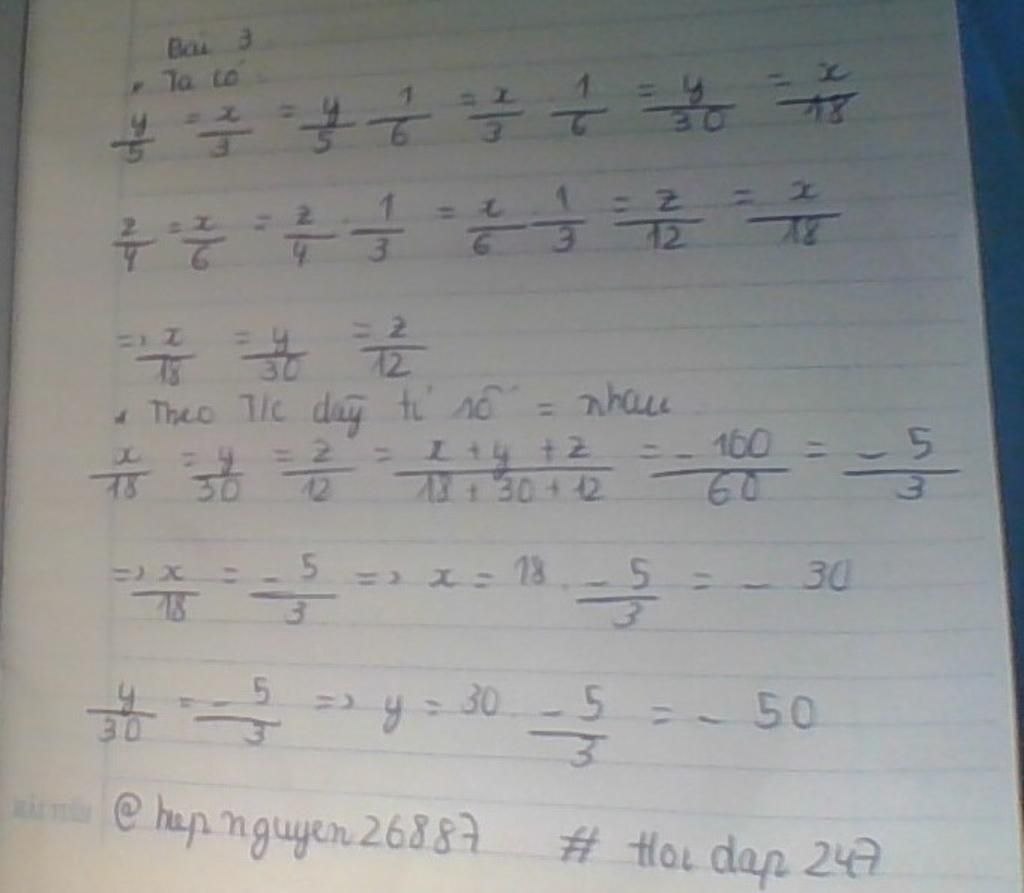 Bài 3
• Ta có
y/5 = x/3 = y/5 · 1/6 = x/3 · 1/6 = y/30 = x/18
z/4 = x/6 = z/4 · 1/3 = x/6 · 1/3 = z/12 = x/18
=> x/18 = y/30 = z/12
• Theo T/c dãy tỉ số = nhau
x/18 = y/30 = z/12 = x + y + z/18 + 30 + 12 = -100/60 = -5/3
=> x/18 = -5/3 => x = 18 . -5/3 = -30
y/30 = -5/3 => y = 30 -5/3 = -50
@hupnguyen26887 # Hoi dap 247